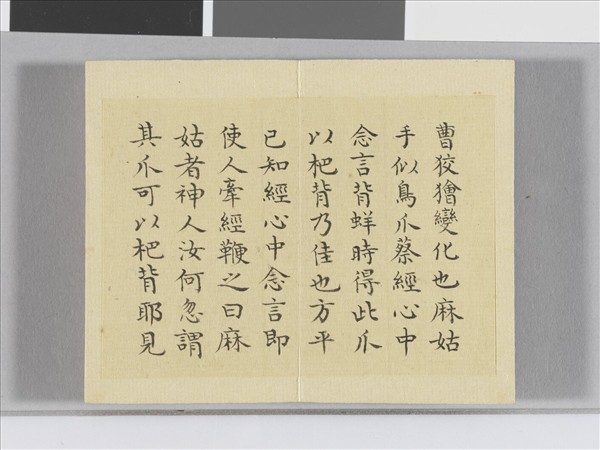 曹狡獪變化也麻姑
手似鳥爪蔡經心中
念言背蛘時得此爪
以杷背乃佳也方平
已知經心中念言即
使人牽經鞭之曰麻
姑者神人汝何忽謂
其爪可以杷背耶見